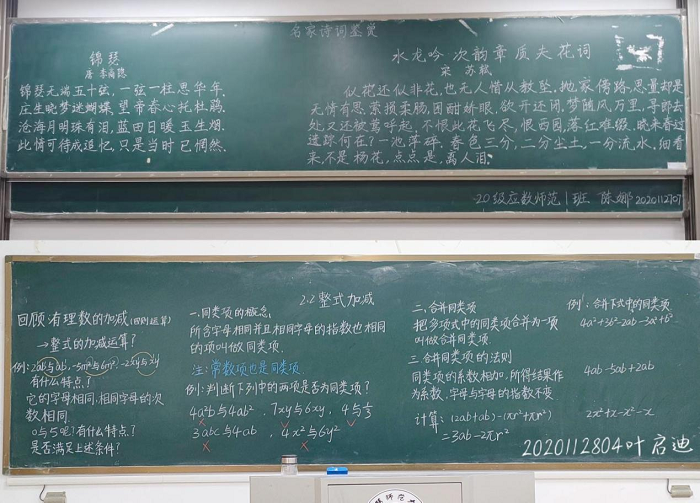 名家诗词鉴赏
锦瑟
唐 李商隐
锦瑟无端五十弦,一弦一柱思华年.
庄生晓梦迷蝴蝶,望帝春心托杜鹃.
沧海月明珠有泪,蓝田日暖玉生烟.
此情可待成追忆,只是当时已惘然.
水龙吟 次韵章质夫杨花词
宋 苏轼
似花还似非花,也无人惜从教坠.抛家傍路,思量却是
无情有思.萦损柔肠,困酣娇眼,欲开还闭.梦随风万里,寻郎去
处,又还被莺呼起.不恨此花飞尽,恨西园,落红难缀.晓来雨过
遗踪何在?一池萍碎.春色三分,二分尘土,一分流水.细看
来,不是杨花,点点是,离人泪.
20级应数师范1班 陈娜 2020112707
回顾有理数的加减(四则运算)
→整式的加减运算?
例:2ab与ab,-5m²与6m²,-2xy与xy
有什么特点?
它的字母相同,相同字母的次
数相同.
0与5呢?有什么特点?
是否满足上述条件?
2.2整式加减
一.同类项的概念:
所含字母相同并且相同字母的指数也相同
的项叫做同类项.
注:常数项也是同类项.
例:判断下列中的两项是否为同类项?
4a²b与4ab², 7xy与6xy, 4与1/3
3abc与4ab, 4x²与6y²
二,合并同类项
把多项式中的同类项合并为一项
叫做合并同类项
三.合并同类项的法则
同类项的系数相加,所得结果作
为系数,字母与字母的指数不变
计算:(2ab+ab)-(πr²+πr²)
=3ab-2πr²
例:合并下式中的同类项
4a²+3b²-2ab-3a²+b²
4ab-5ab+2ab
2x²+x-x²-x
2020112804叶启迪